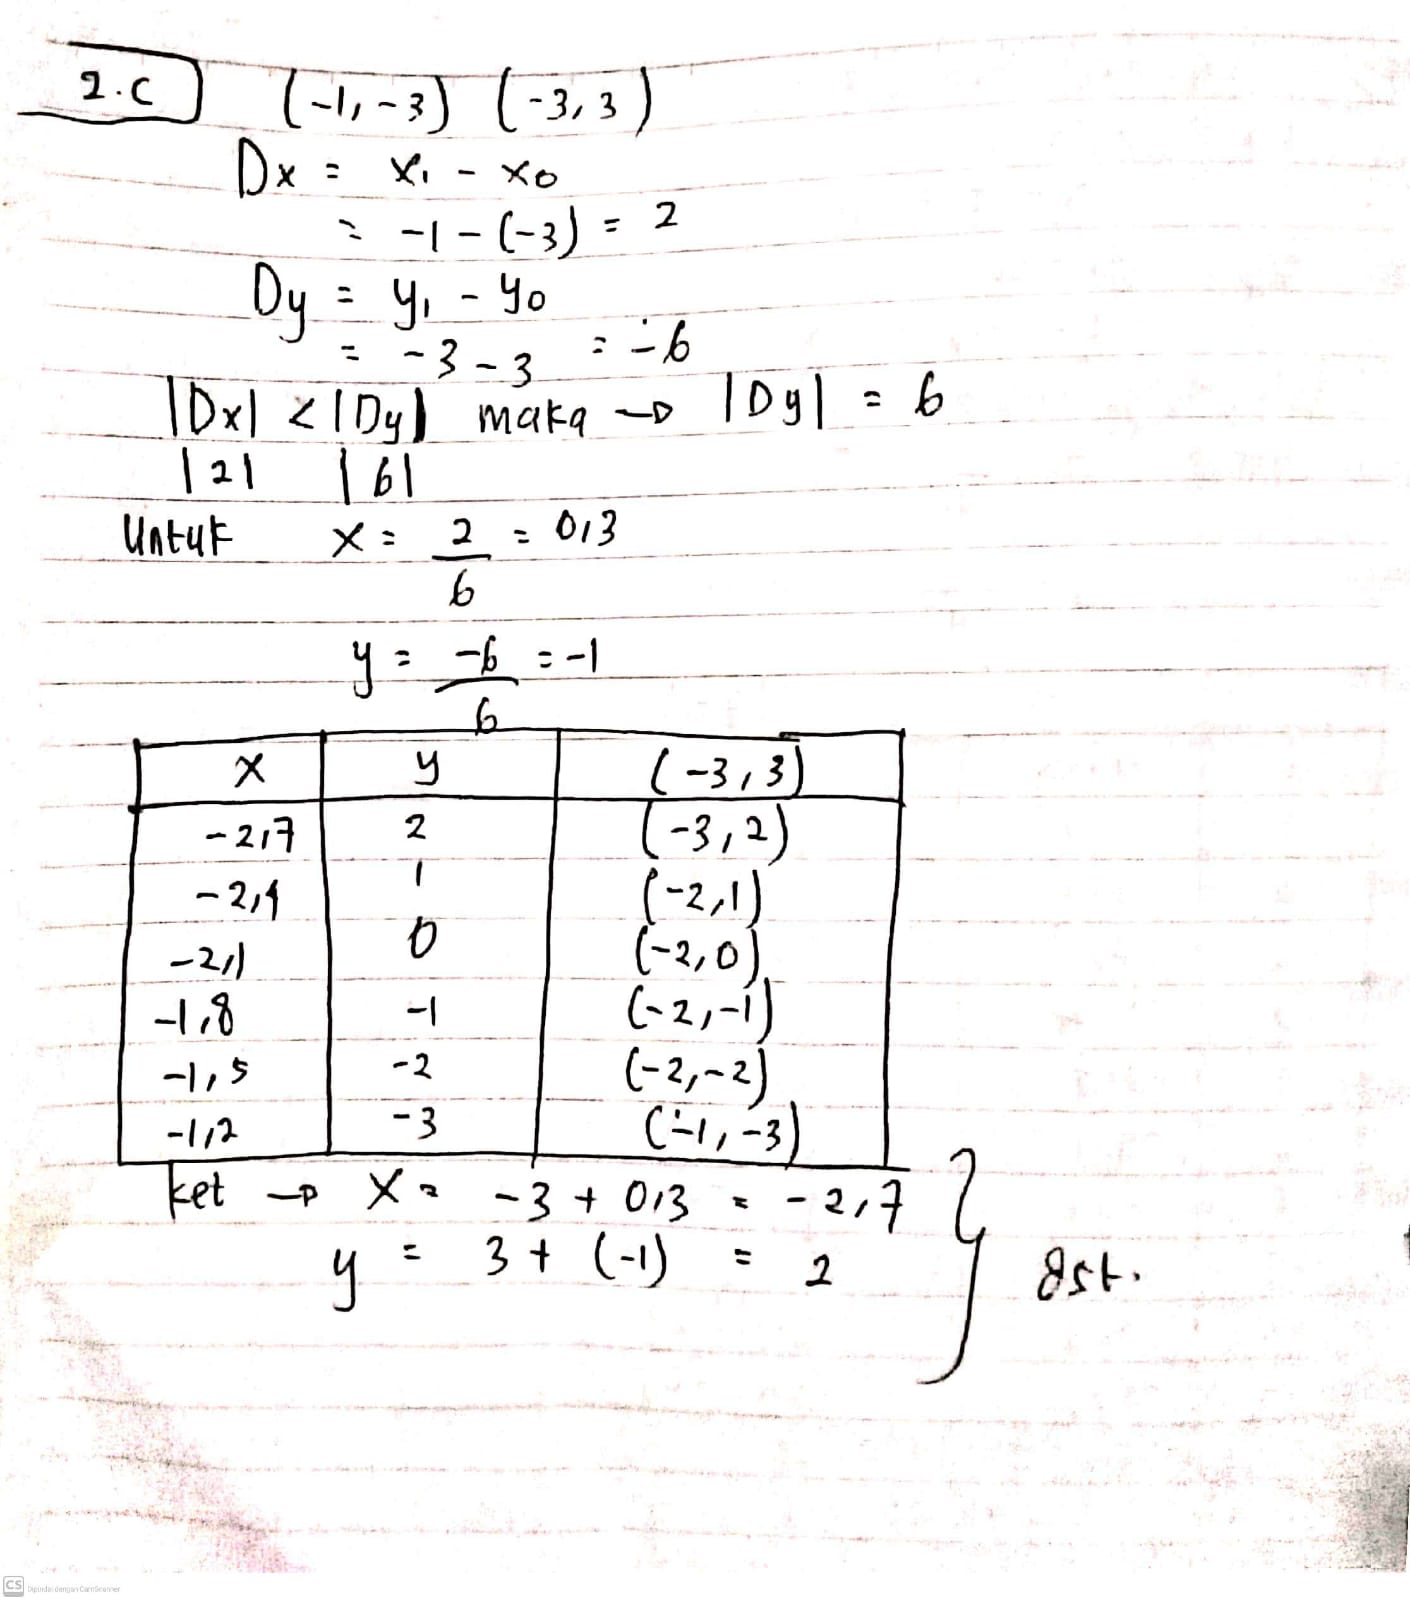 2.c (-1, -3) (-3, 3)
Dx = x₁ - x₀
= -1 - (-3) = 2
Dy = y₁ - y₀
= -3 - 3 = -6
|Dx| < |Dy| maka → |Dy| = 6
|2| |6|
Untuk x = 2/6 = 0,3
y = -6/6 = -1
x y (-3, 3)
-2,7 2 (-3, 2)
-2,4 1 (-2, 1)
-2,1 0 (-2, 0)
-1,8 -1 (-2, -1)
-1,5 -2 (-2, -2)
-1,2 -3 (-1, -3)
ket → x = -3 + 0,3 = -2,7
y = 3 + (-1) = 2 } dst.
CS Dipindai dengan CamScanner